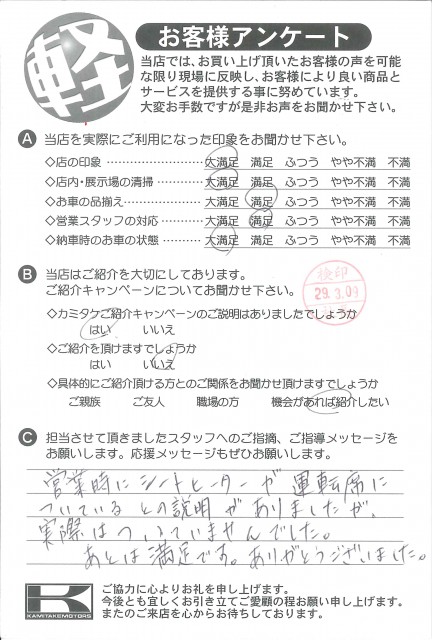 軽
お客様アンケート
当店では、お買い上げ頂いたお客様の声を可能
な限り現場に反映し、お客様により良い商品と
サービスを提供する事に努めています。
大変お手数ですが是非お声をお聞かせ下さい。
A 当店を実際にご利用になった印象をお聞かせ下さい。
◇店の印象 ……………………… 大満足 満足 ふつう やや不満 不満
◇店内・展示場の清掃 ………… 大満足 満足 ふつう やや不満 不満
◇お車の品揃え ………………… 大満足 満足 ふつう やや不満 不満
◇営業スタッフの対応 ………… 大満足 満足 ふつう やや不満 不満
◇納車時のお車の状態 ………… 大満足 満足 ふつう やや不満 不満
B 当店はご紹介を大切にしております。
ご紹介キャンペーンについてお聞かせ下さい。
検印
29.3.09
◇カミタケご紹介キャンペーンのご説明はありましたでしょうか
はい いいえ
◇ご紹介を頂けますでしょうか
はい いいえ
◇具体的にご紹介頂ける方とのご関係をお聞かせ頂けますでしょうか
ご親族 ご友人 職場の方 機会があれば紹介したい
C 担当させて頂きましたスタッフへのご指摘、ご指導メッセージを
お願いします。応援メッセージもぜひお願いします。
営業時にシートヒーターが運転席に
ついているとの説明がありましたが、
実際はついていませんでした。
あとは満足です。ありがとうございました。
K
KAMITAKE MOTORS
ご協力に心よりお礼を申し上げます。
今後とも宜しくお引き立てご愛顧の程お願い申し上げます。
またのご来店を心からお待ちしております。